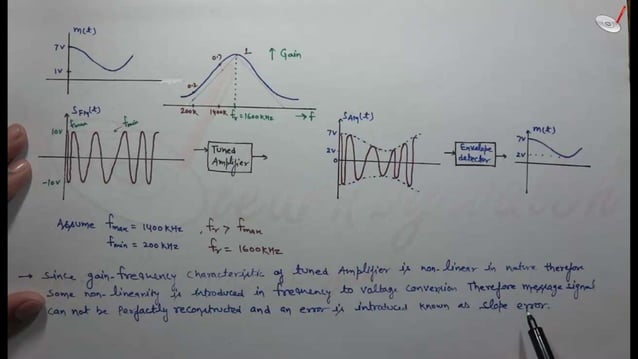 m(t)
7V
1V
↑ Gain
1
0.7
0.2
200K 1400K fr = 1600KHz → f
SFM(t)
fmax
fmin
10V
-10V
Tuned
Amplifier
SAM(t)
7V
2V
0
Envelope
detector
m(t)
7V
2V
Assume fmax = 1400KHz , fr > fmax
fmin = 200KHz fr = 1600KHz
→ Since gain-frequency characteristic of tuned Amplifier is non-linear in nature therefore
Some non-linearity is introduced in frequency to voltage conversion Therefore message signal
can not be perfactly reconstructed and an error is introduced known as slope error.